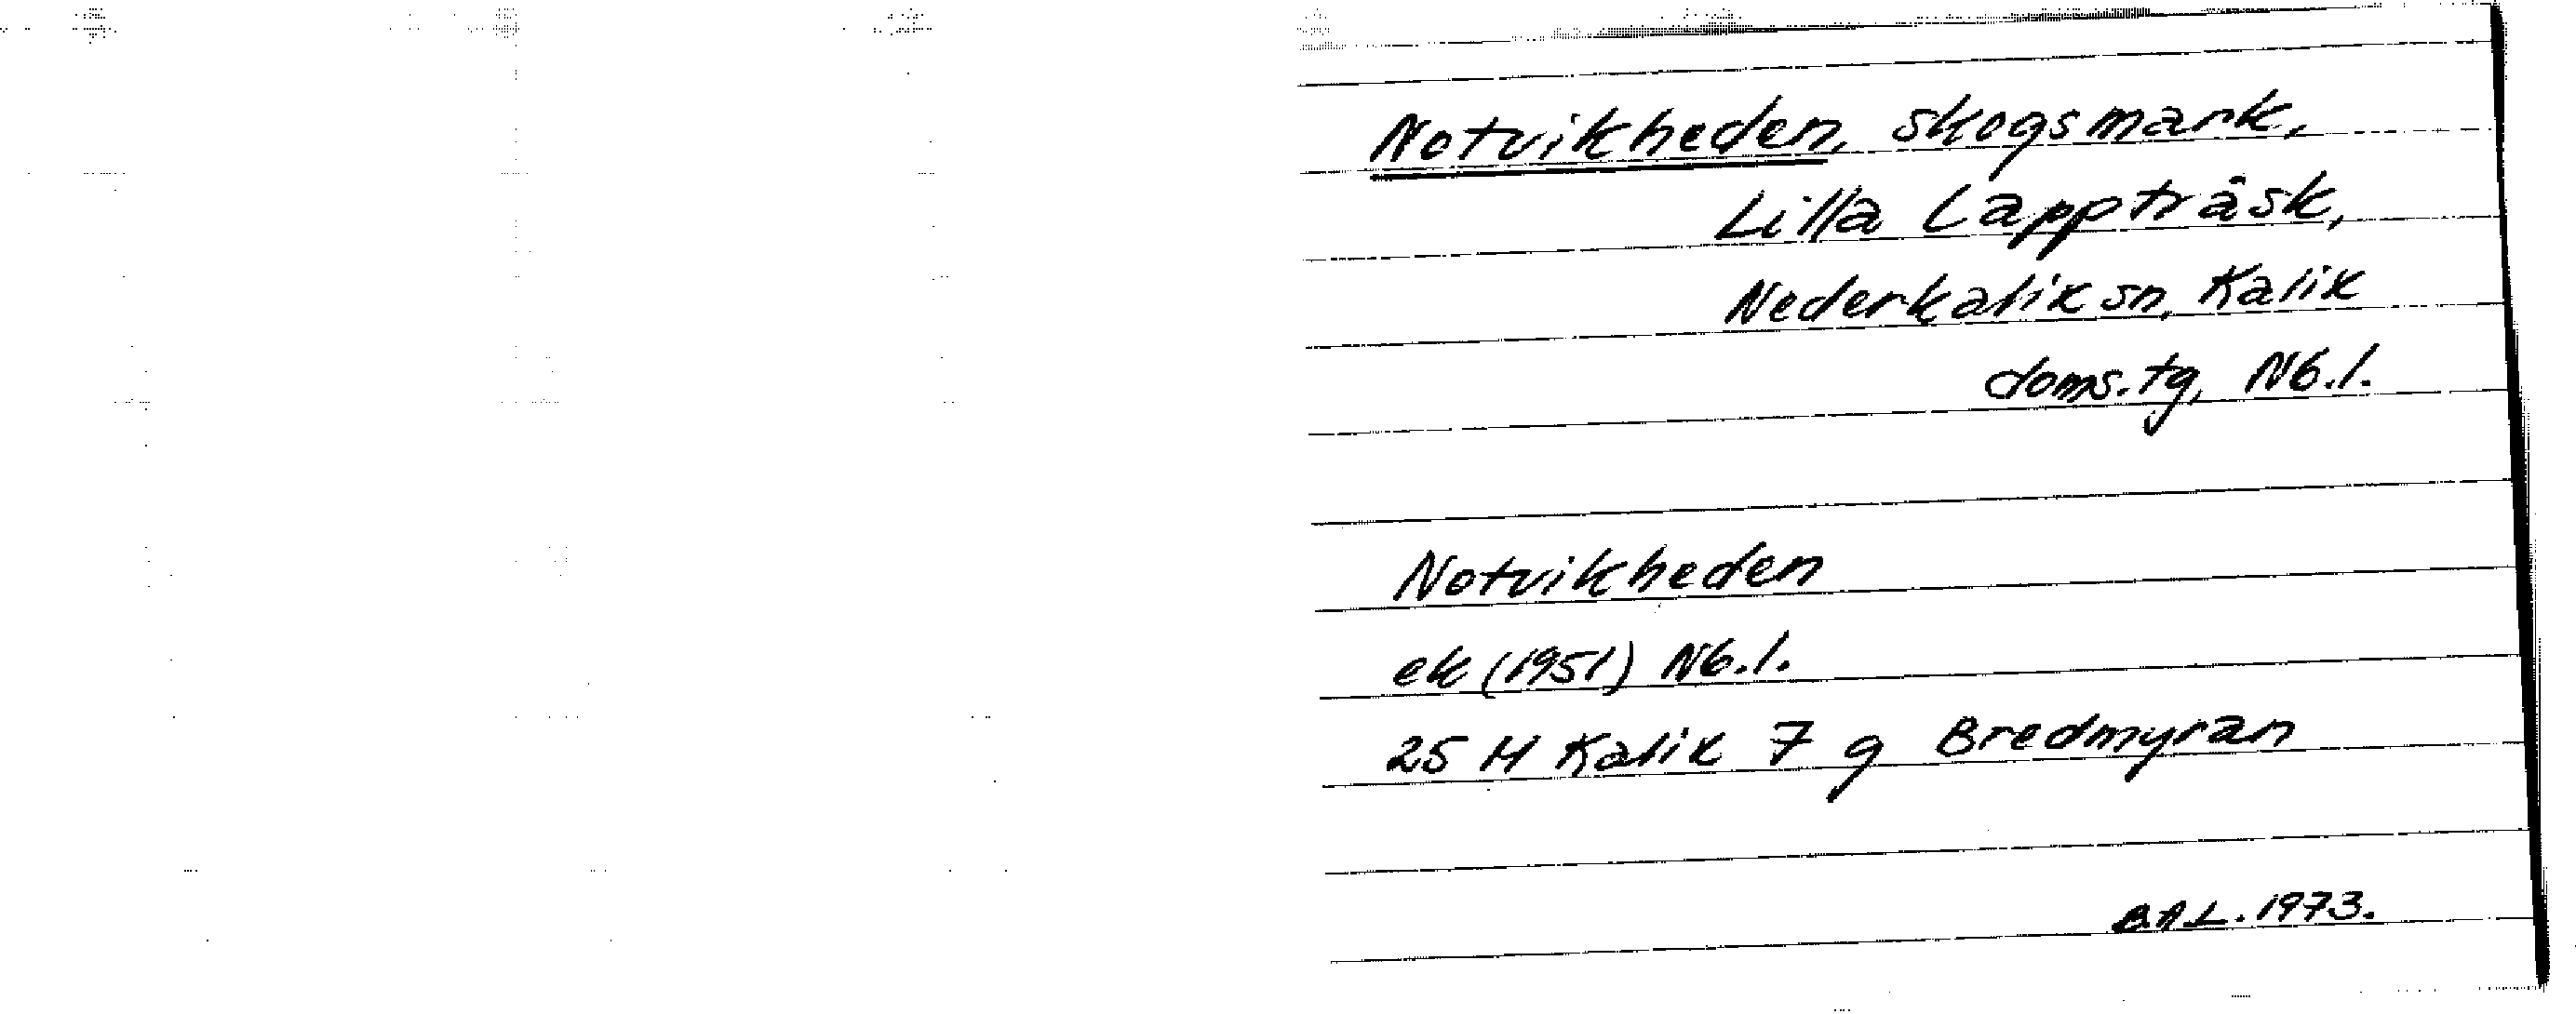 Notvikheden, skogsmark,
Lilla Lappträsk,
Nederkalix sn, Kalix
doms.tg, Nb.l.
Notvikheden
ek (1951) Nb.l.
25 M Kalix 7 g Bredmyran
B.A.L. 1973.